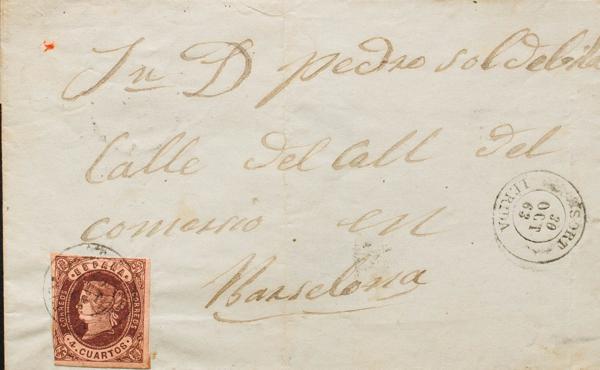 Sr D pedro soldebila
Calle del Call del
comersio en
Barselona
SORT
20
OCT
63
LERIDA
ESPAÑA
CORREOS
CORREOS
4 CUARTOS